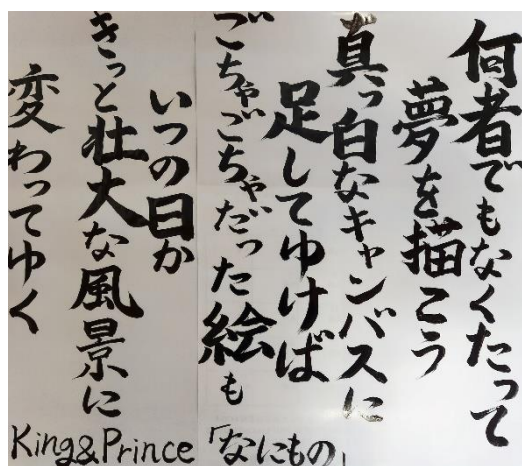 何者でもなくたって
夢を描こう
真っ白なキャンバスに
足してゆけば
ごちゃごちゃだった絵も
いつの日か
きっと壮大な風景に
変わってゆく
King&Prince「なにもの」